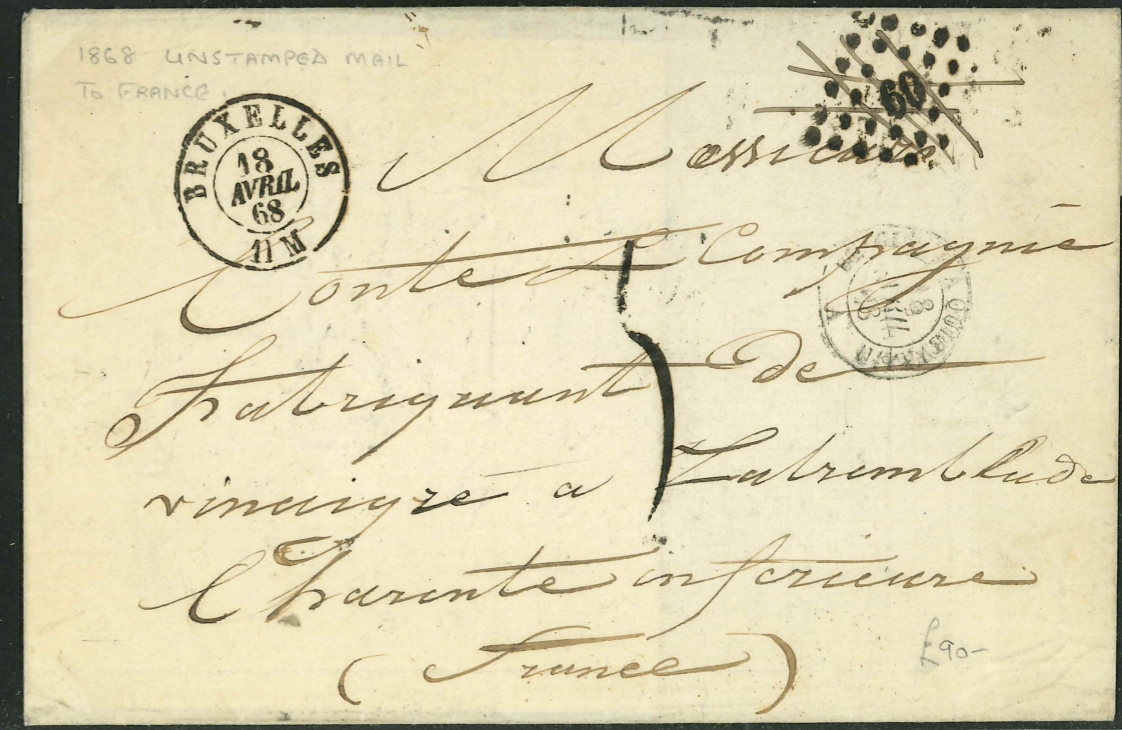 1868 UNSTAMPED MAIL
TO FRANCE
BRUXELLES
18
AVRIL
68
11 M
60
Messieurs
Conte & Compagnie
Fabriquant de
vinaigre a Latremblade
Charente inferieure
(France)
5
A QUIÉVRAIN
18
68
£90-